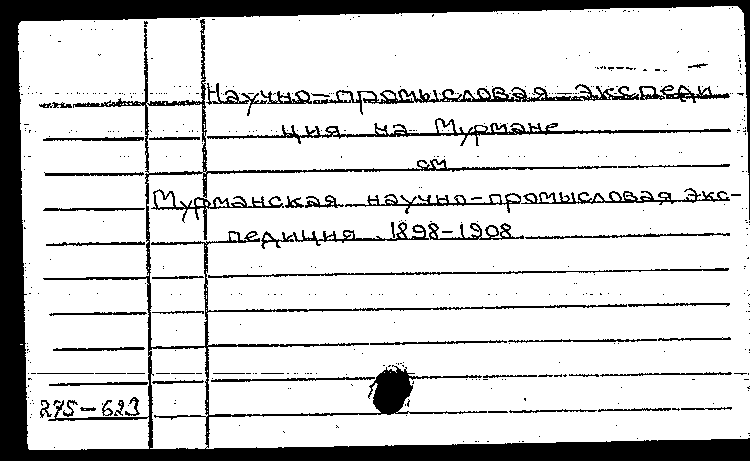 Научно-промысловая экспеди
ция на Мурмане
см
Мурманская научно-промысловая экс-
педиция. 1898-1908
275-623